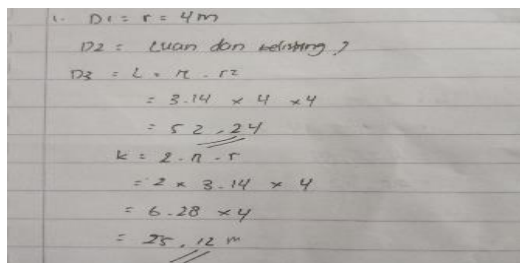 1. D1 = r = 4m
D2 = Luan dan keliling ?
D3 = L = π . r2
= 3.14 x 4 x 4
= 52.24
k = 2 . π . r
= 2 x 3.14 x 4
= 6.28 x 4
= 25.12 m